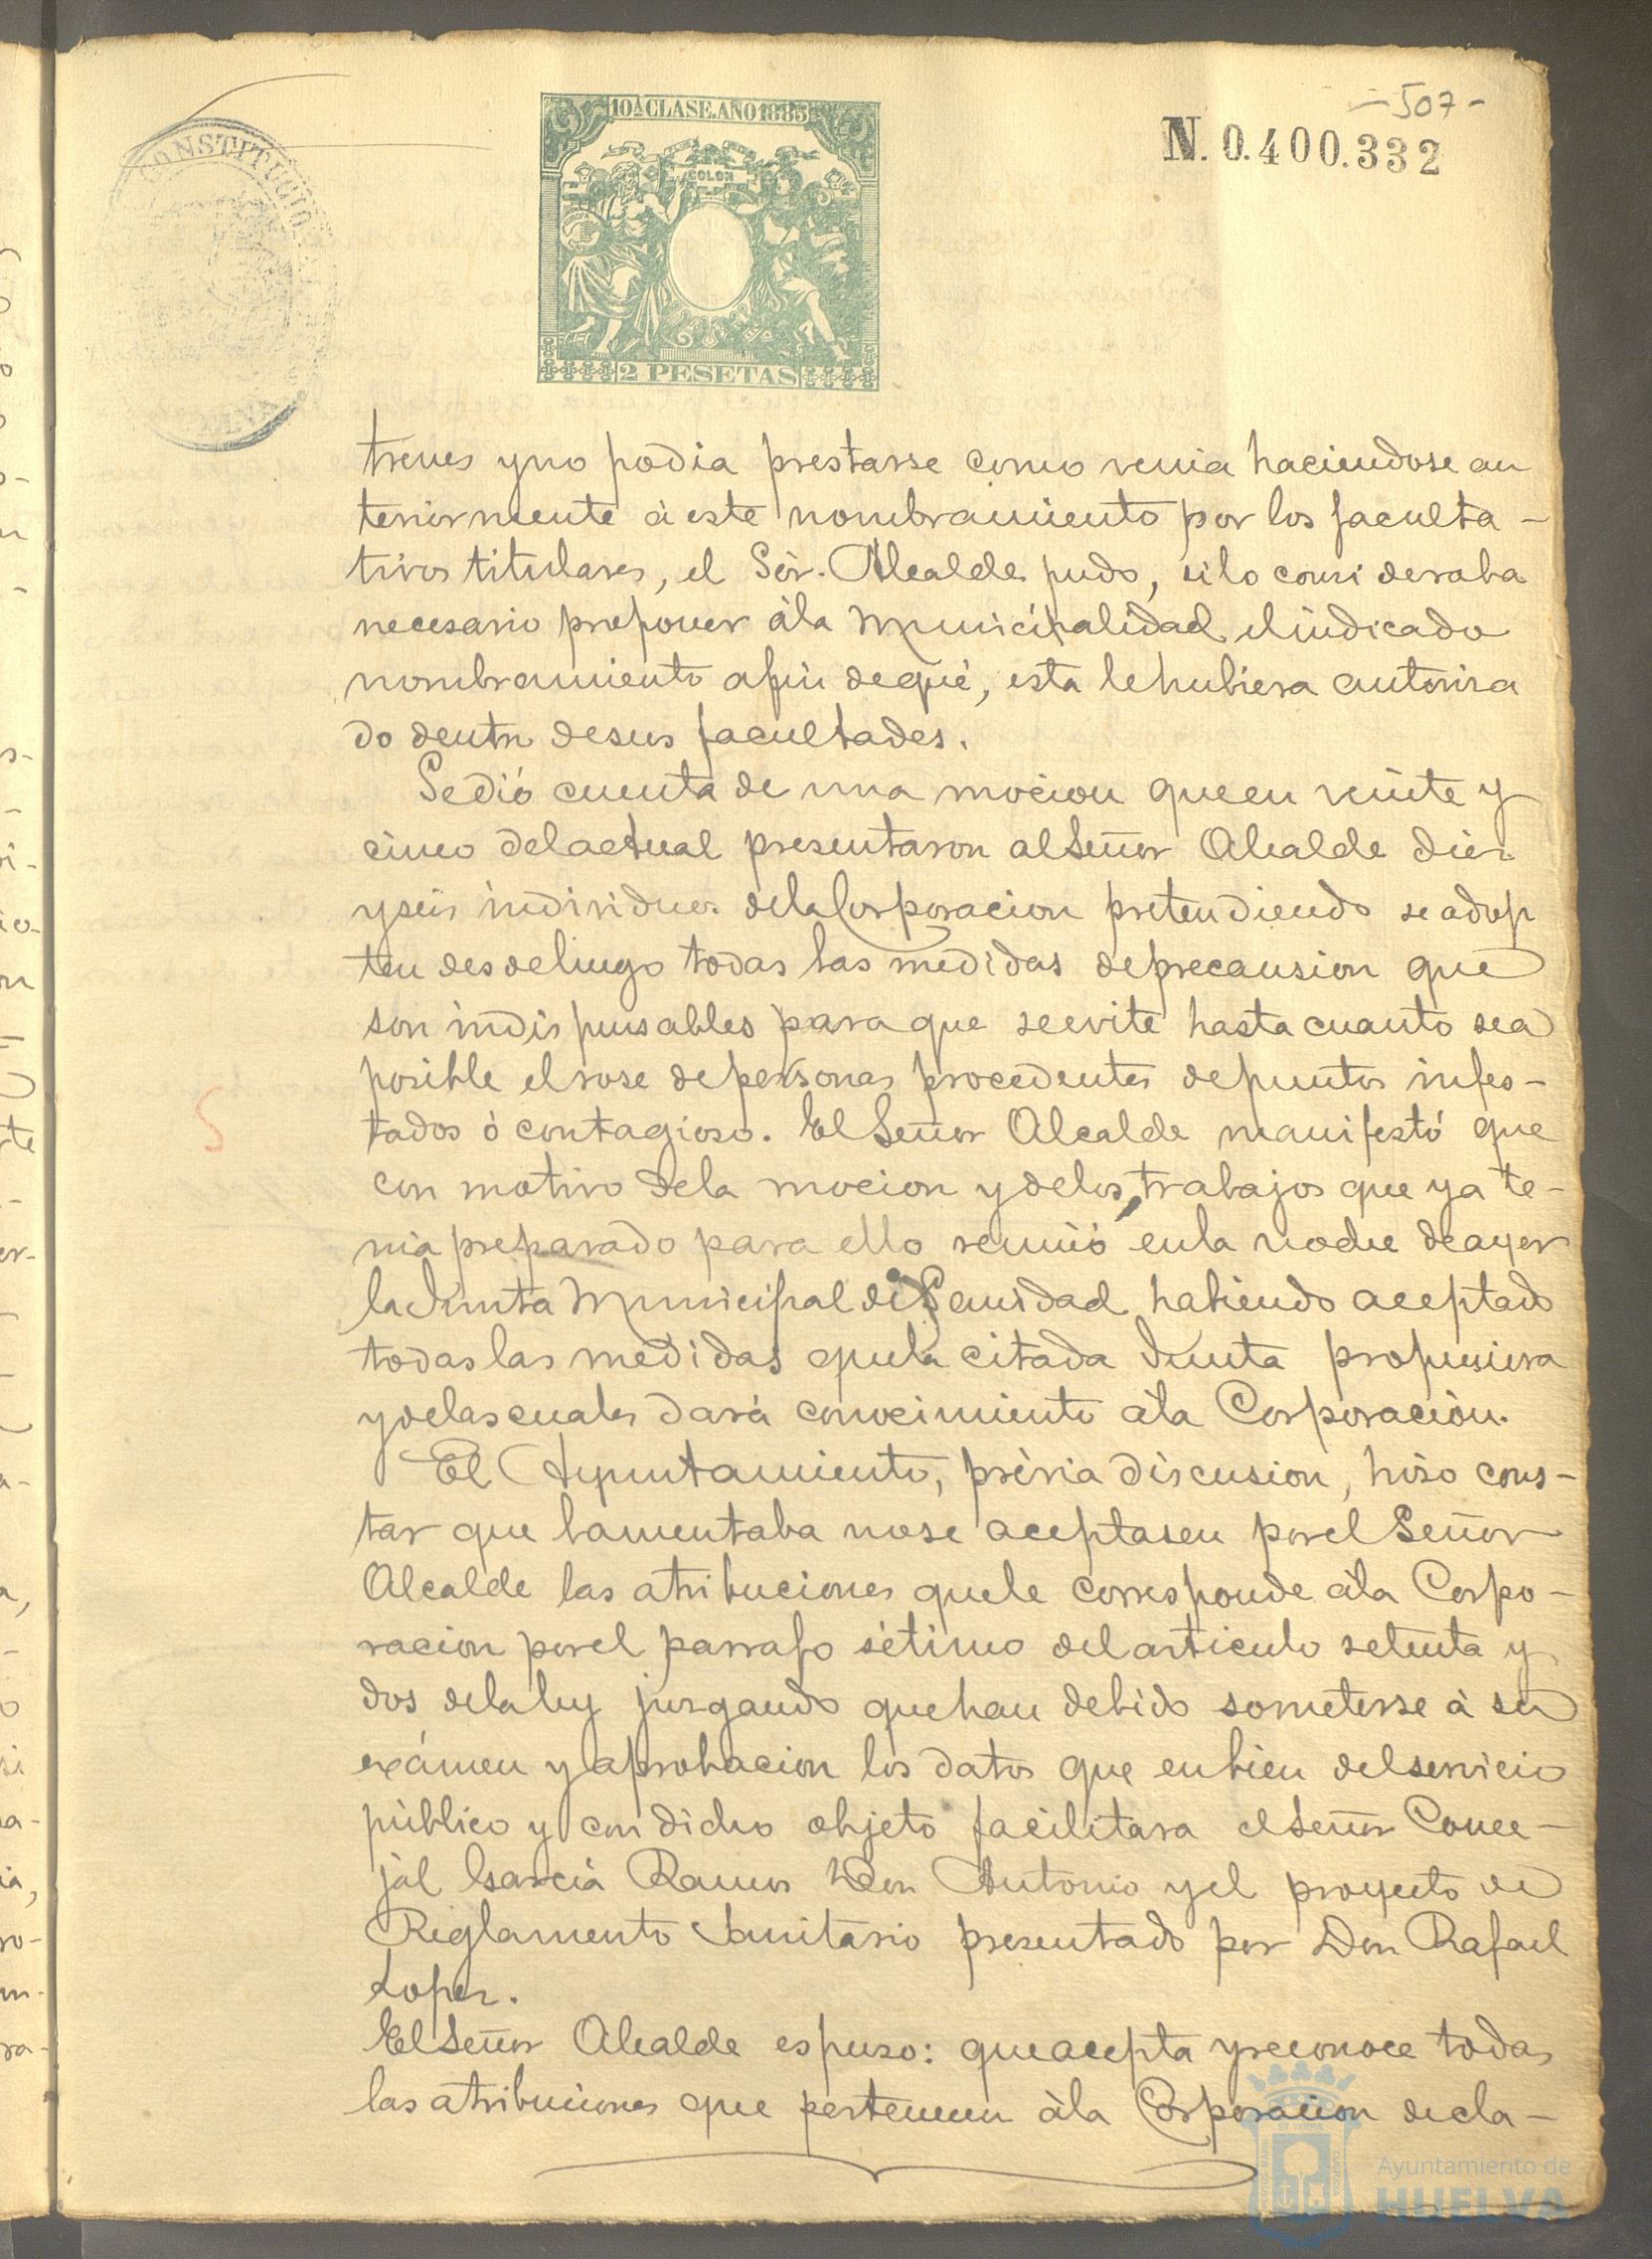 -507-
N. 0.400.332
CONSTITUCIO
10ª CLASE. AÑO 1885
COLON
2 PESETAS
treves y no podia prestarse como venia haciendose an
teriormente á este nombramiento por los faculta-
tivos titulares, el Sór. Alcalde pudo, si lo consideraba
necesario proponer á la Municipalidad el indicado
nombramiento a fin de qué, esta le hubiera autorisa
do dentro de sus facultades.
Se dió cuenta de una mocion que en veinte y
cinco del actual presentaron al Señor Alcalde diez
y seis individuos de la Corporacion pretendiendo se adop
ten desde luego todas las medidas de precausion que
son indispensables para que se evite hasta cuanto sea
posible el rose de personas procedentes de puntos infes-
tados ó contagioso. El Señor Alcalde manifestó que
con motivo de la mocion y de los trabajos que ya te-
nia preparado para ello reunió en la noche de ayer
la Junta Municipal de Sanidad habiendo aceptado
todas las medidas que la citada Junta propusiera
y de las cuales dará conocimiento á la Corporación.
El Ayuntamiento, prévia discusion, hiso cons-
tar que lamentaba no se aceptasen por el Señor
Alcalde las atribuciones que le corresponde á la Corpo-
racion por el parrafo sétimo del articulo setenta y
dos de la ley jusgando que han debido someterse á su
exámen y aprobacion los datos que en bien del servicio
público y con dicho objeto facilitara el Señor Conce-
jál Garcia Ramos Don Antonio y el proyecto de
Reglamento Sanitario presentado por Don Rafael
Lopez.
El Señor Alcalde espuso: que acepta y reconoce todas
las atribuciones que pertenecen á la Corporacion decla-
Ayuntamiento de
HUELVA